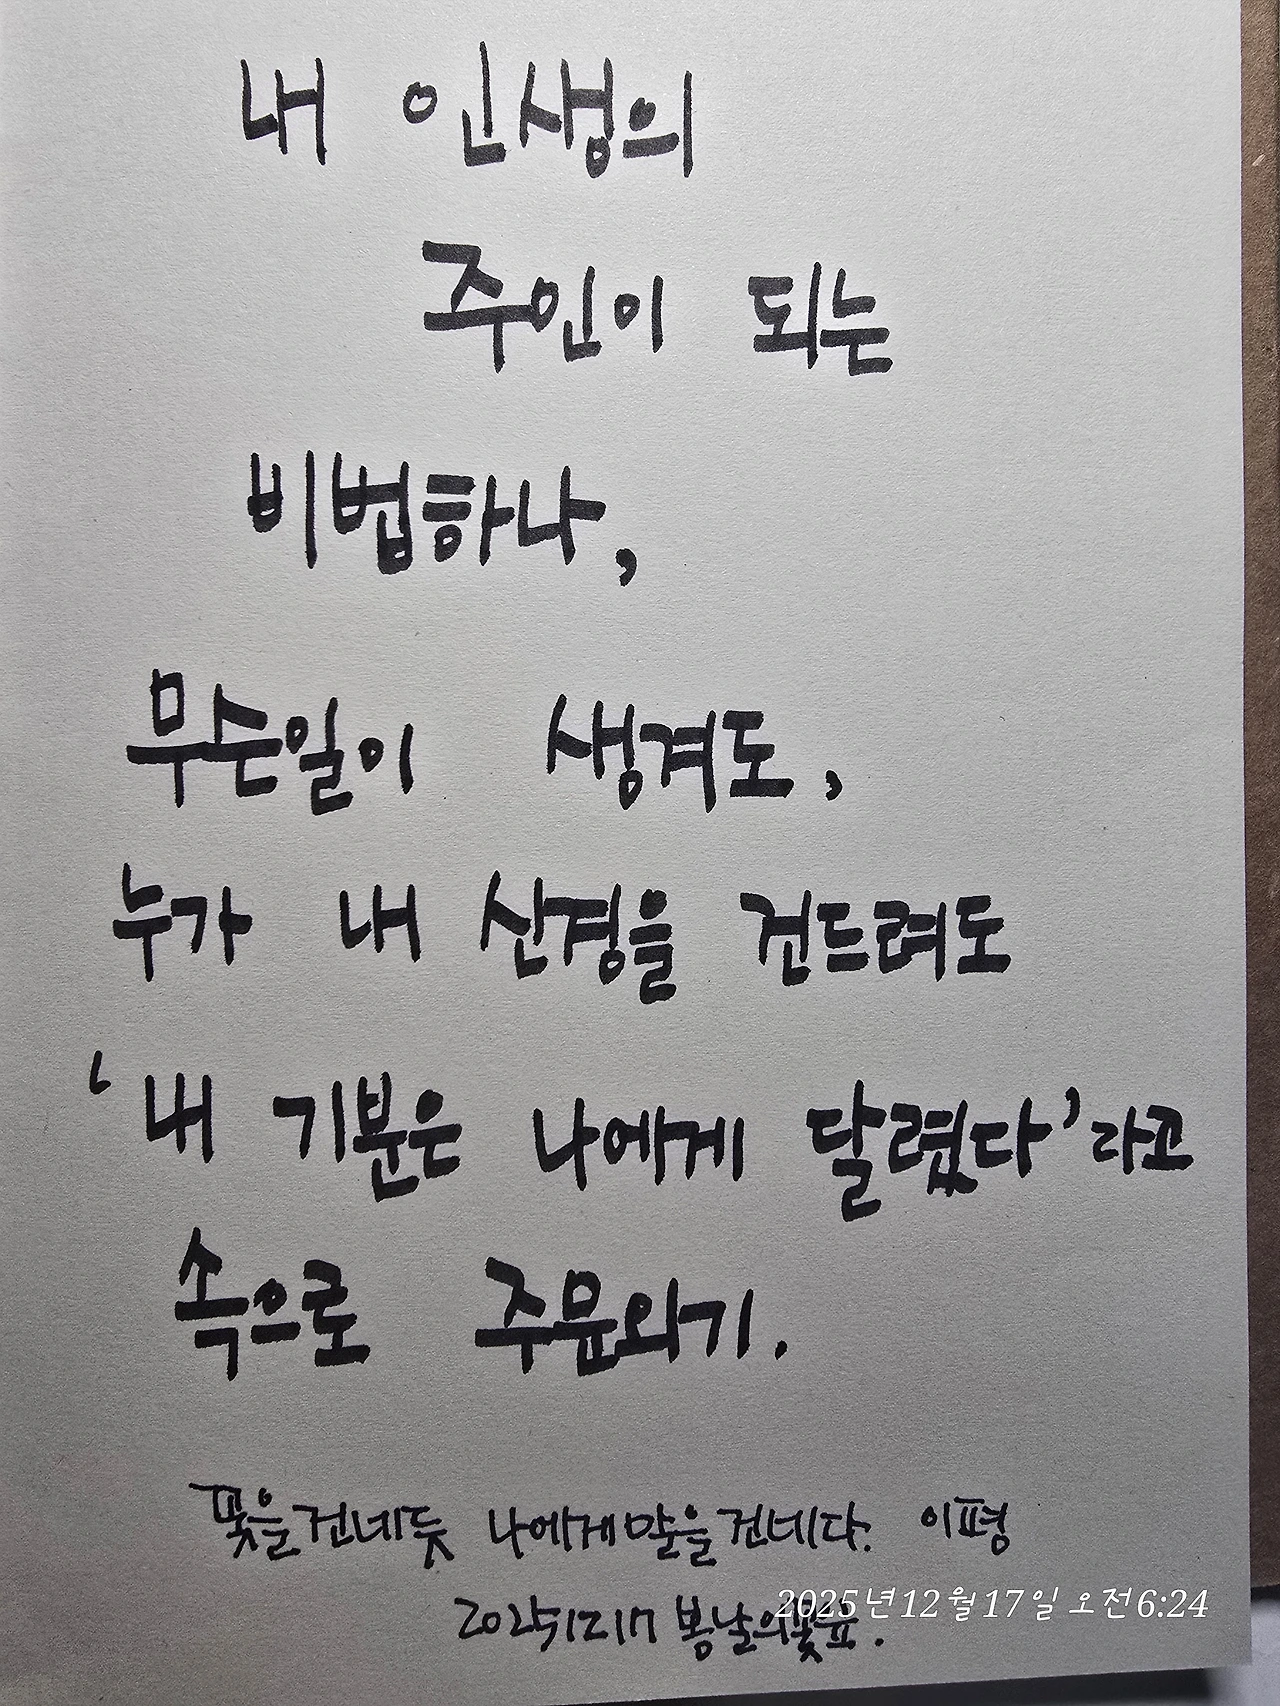 내 인생의
주인이 되는
비법하나,
무슨일이 생겨도,
누가 내 신경을 건드려도
'내 기분은 나에게 달렸다'라고
속으로 주문외기.
꽃을건네듯 나에게말을건네다. 이평
20251217 봄날의꽃
2025년12월17일 오전6:24